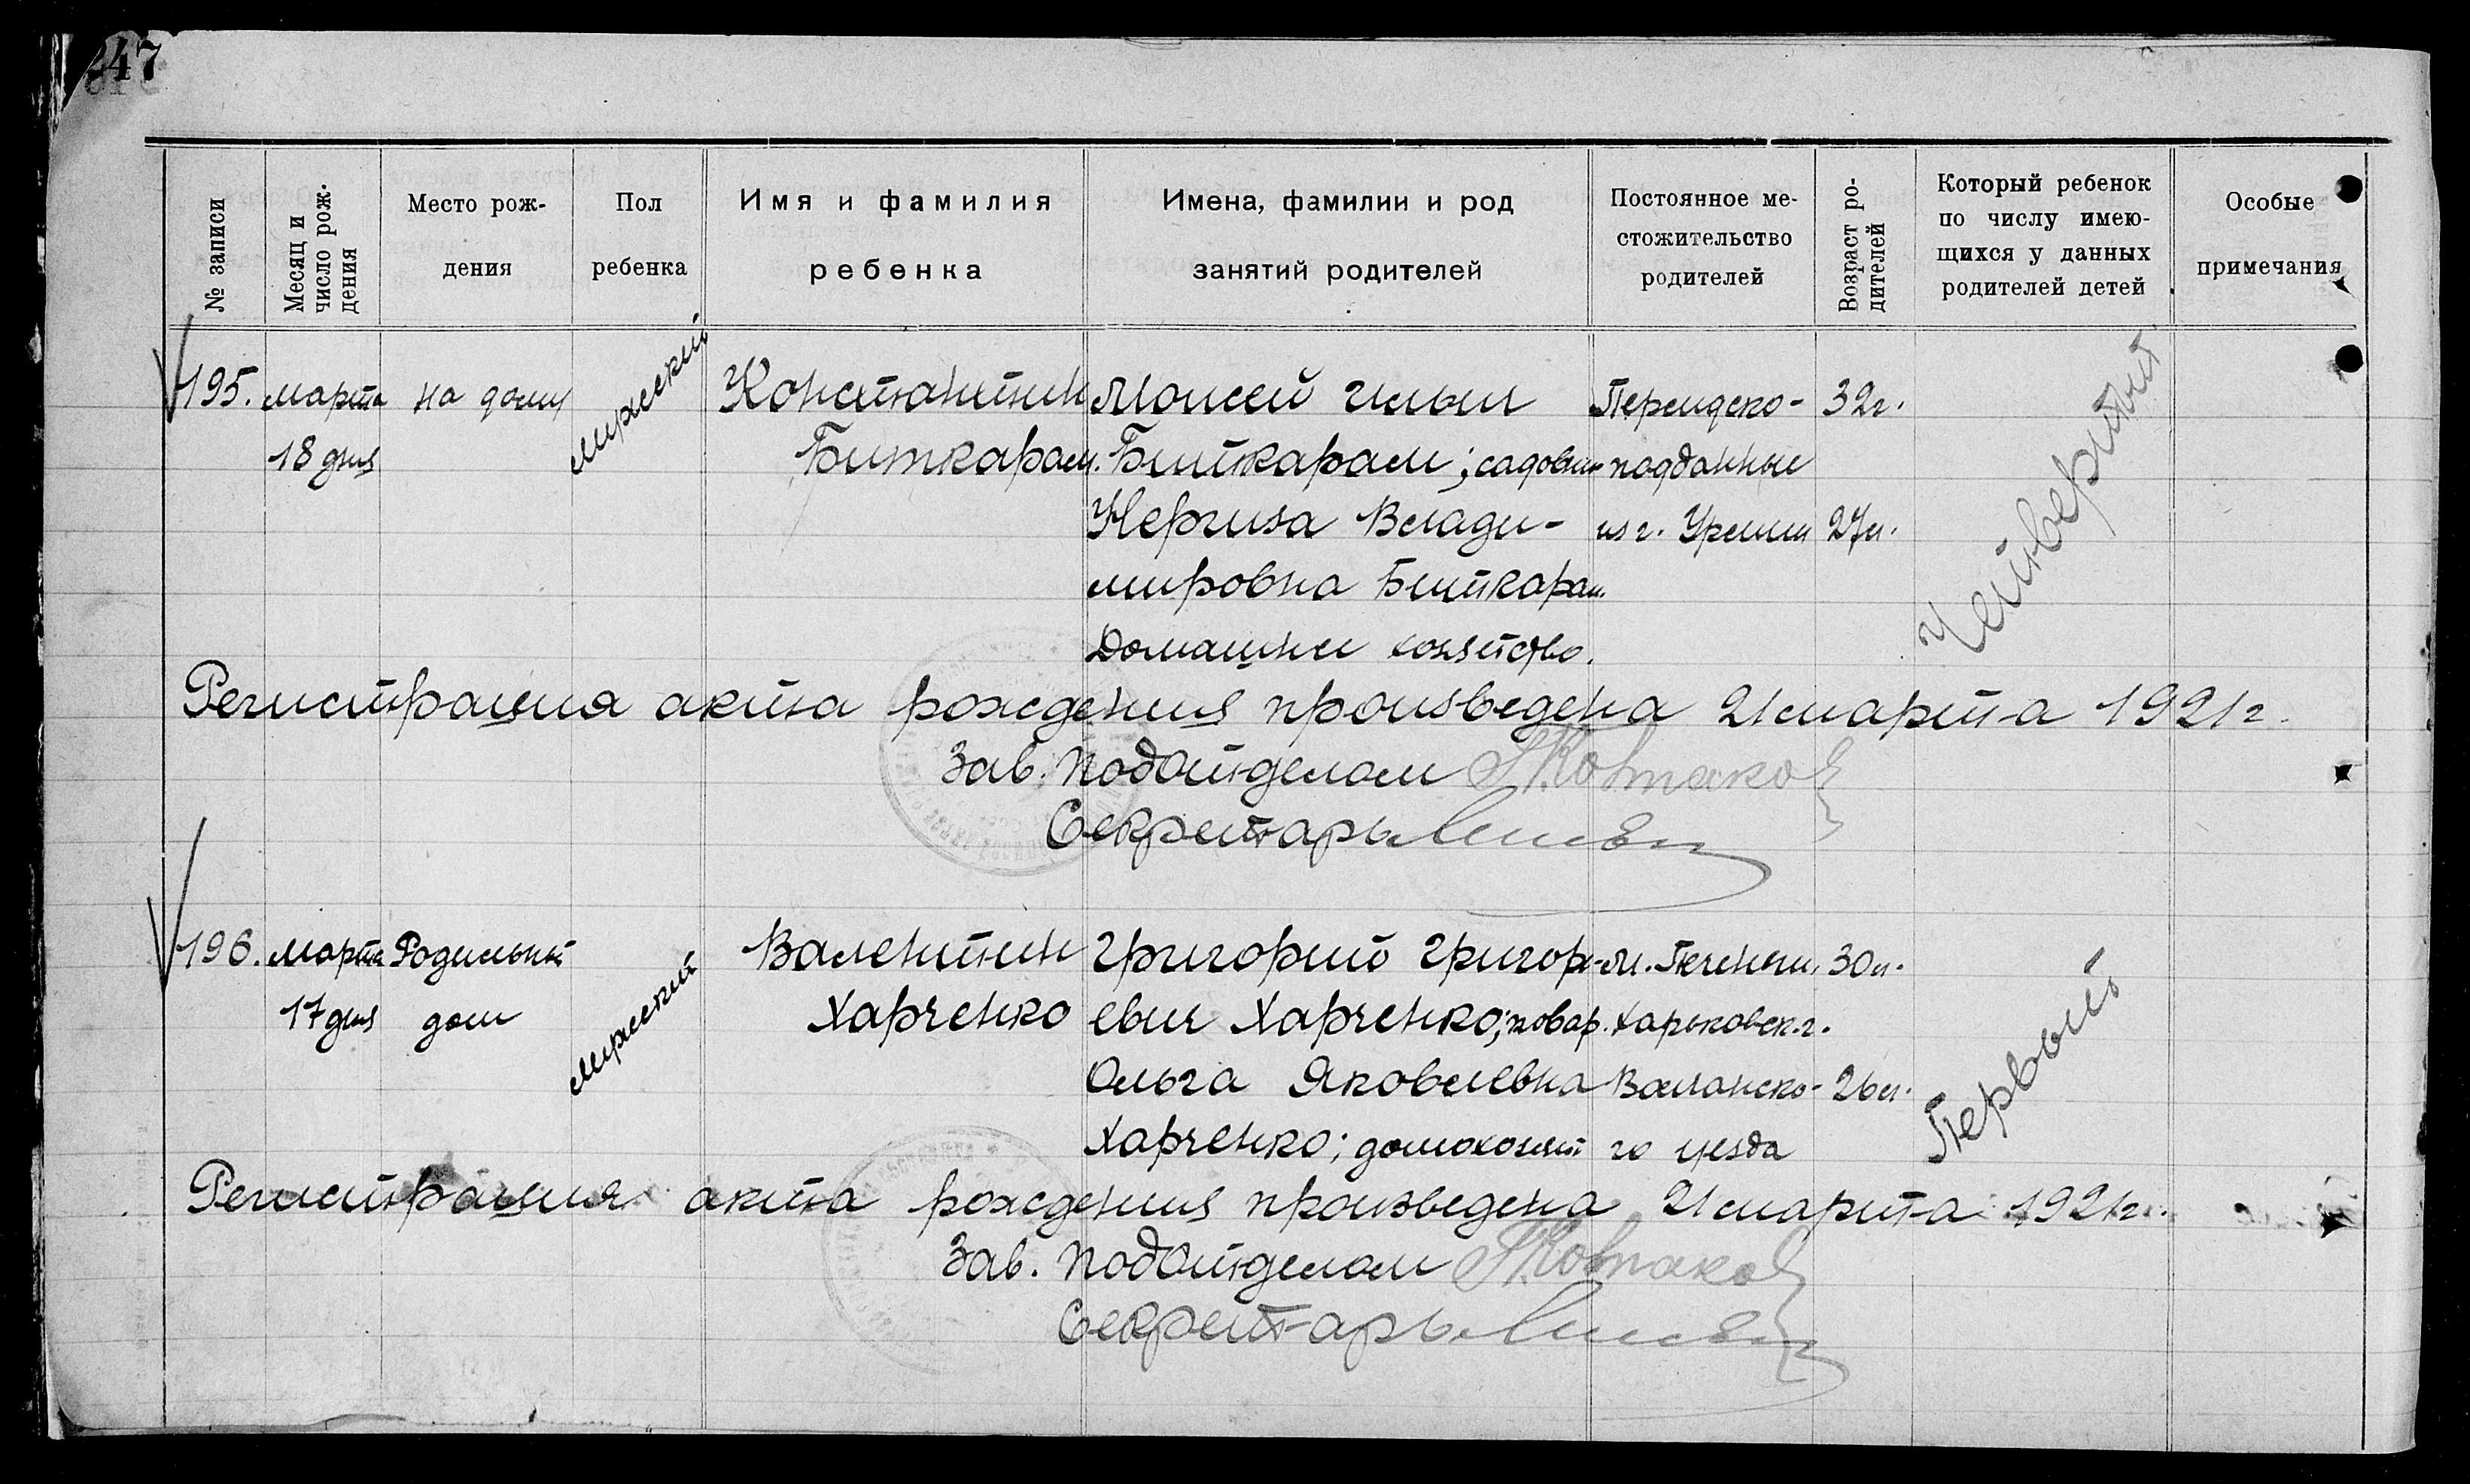 247
№ записи
Месяц и
число рож-
дения
Место рож-
дения
Пол
ребенка
Имя и фамилия
ребенка
Имена, фамилии и род
занятий родителей
Постоянное ме-
стожительство
родителей
Возраст ро-
дителей
Который ребенок
по числу имею-
щихся у данных
родителей детей
Особые
примечания
195.
марта
18 дня
на дому
мужской
Константин
Биткарам.
Моисей Ильич
Биткарам; садовн
Нергиза Влади-
мировна Биткарам.
Домашнее хозяйство.
Персидско-
подданные
из г. Урмии
32г.
27л.
Четвертый
Регистрация акта рождения произведена 21 марта 1921г.
Зав. Подотделом
Секретарь
196.
марта
17 дня
Родильный
дом
мужской
Валентин
Харченко
Григорий Григор-
евич Харченко; повар.
Ольга Яковлевна
Харченко; домохозяй
м. Печенеги,
Харьковск. г.
Волчанско-
го уезда
30л.
26л.
Первый
Регистрация акта рождения произведена 21 марта 1921г.
Зав. Подотделом
Секретарь